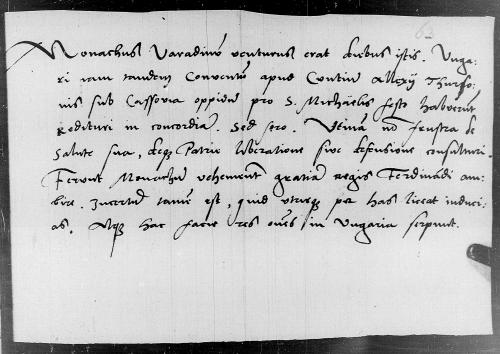 Monachus Varadinū venturus erat diebus istis. Vnga-
ri iam tandem Conventū apud Comitem Allexÿ Thurso-
nis sub Cassovia oppidum pro S. Michaëlis festo habuerūt
redituri in concordiā. Sed sero. Vtinā nō frustra de
salute sua, deqз Patrie liberatione sive defensione consulturi.
Ferunt Monachū vehementer gratiā regis Ferdinādi am-
bire. Incertū tamen est, quid uterqз per has liceat induci-
as. Atqз hac facie res om̄es in Vngaria serpunt.